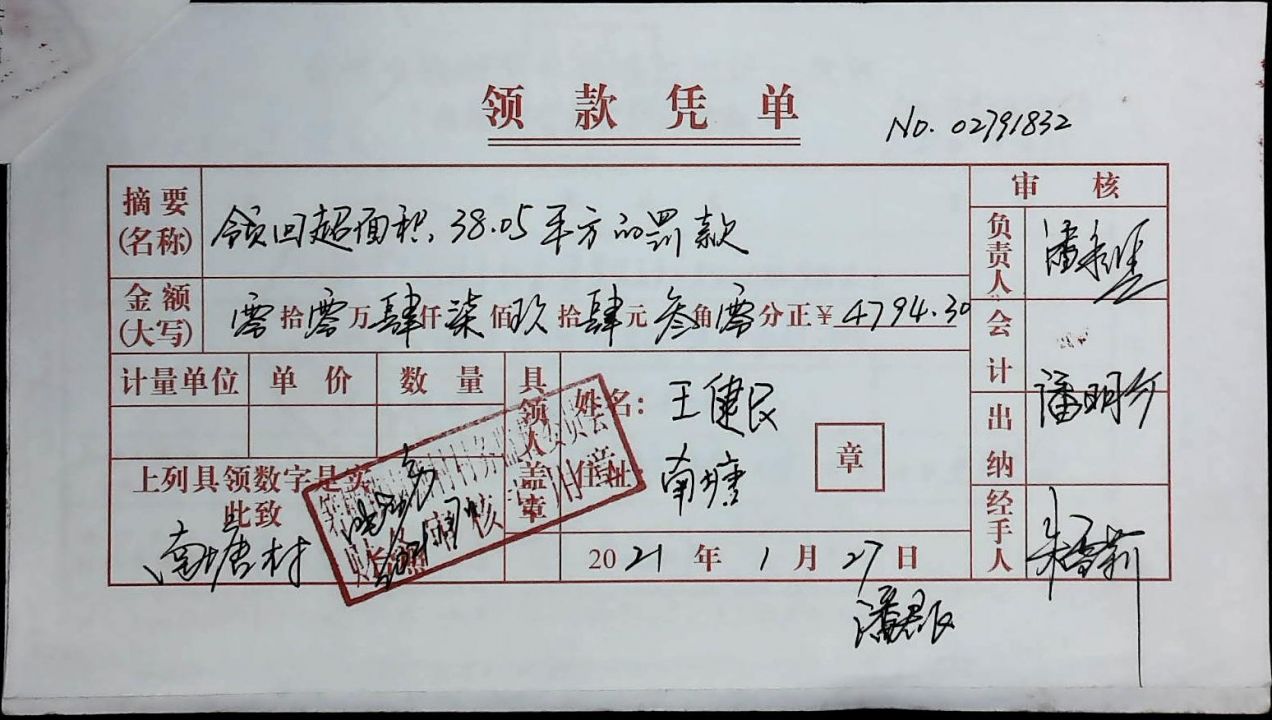 领款凭单
No. 02791832
摘要(名称) 领回超面积,38.05平方的罚款
金额(大写) 零拾零万肆仟柒佰玖拾肆元叁角零分正¥4794.30
计量单位 单价 数量
具领人盖章
姓名: 王健民
住址: 南塘
章
上列具领数字是实
此致
南塘村
2021年1月27日
审核
负责人
会计
潘明
出纳
经手人
朱雪莉